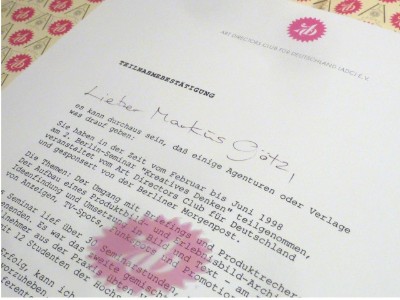 ART DIRECTORS CLUB FÜR DEUTSCHLAND (ADC) E.V.
TEILNAHMEBESTÄTIGUNG
Lieber Markus Götz,
es kann durchaus sein, daß einige Agenturen oder Verlage
was drauf geben:
Sie haben in der Zeit vom Februar bis Juni 1998
am 2. Berlin-Seminar "Kreatives Denken" teilgenommen,
veranstaltet vom Art Directors Club für Deutschland
und gesponsert von der Berliner Morgenpost.
Die Themen: Der Umgang mit Briefings und Produktrecher
Der Aufbau eines Produktbild- und Erlebnisbild-Archiv
Ideenfindung und Umsetzung in Bild und Text - am
von Anzeigen, TV-Spots und Promotion
seminar lief über 30 Semesterstunden,
Es war das zweite
aus der Praxis
12 Studenten der Hochs